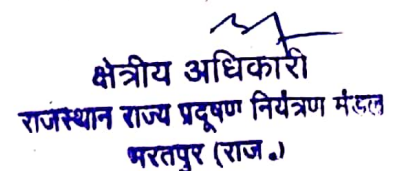 क्षेत्रीय अधिकारी
राजस्थान राज्य प्रदूषण नियंत्रण मंडल
भरतपुर (राज॰)